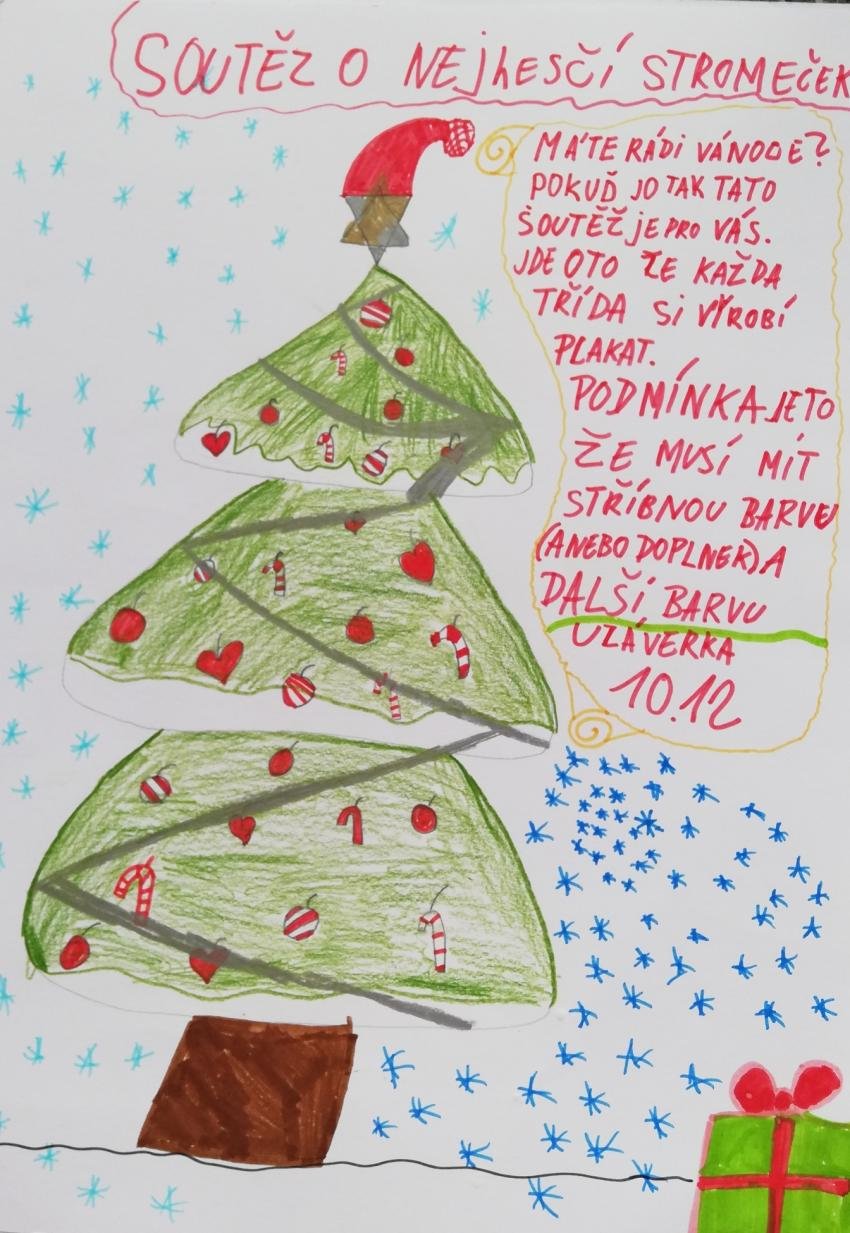 SOUTĚZ O NEJhESČÍ STROMEČEK
MÁTE RÁDI VÁNOCE?
POKUĎ JO TAK TATO
ŠOUTĚŽ jE PRO VÁS.
JDE OTO ŽE KAŽDA
TŘÍDA Si VÝROBÍ
PLAKAT.
PODMÍNKA JE TO
ŽE MUSÍ MÍT
STŘÍBNOU BARVU
(ANEBO DOPLNEK) A
DALŠÍ BARVU
UZÁVERKA
10.12